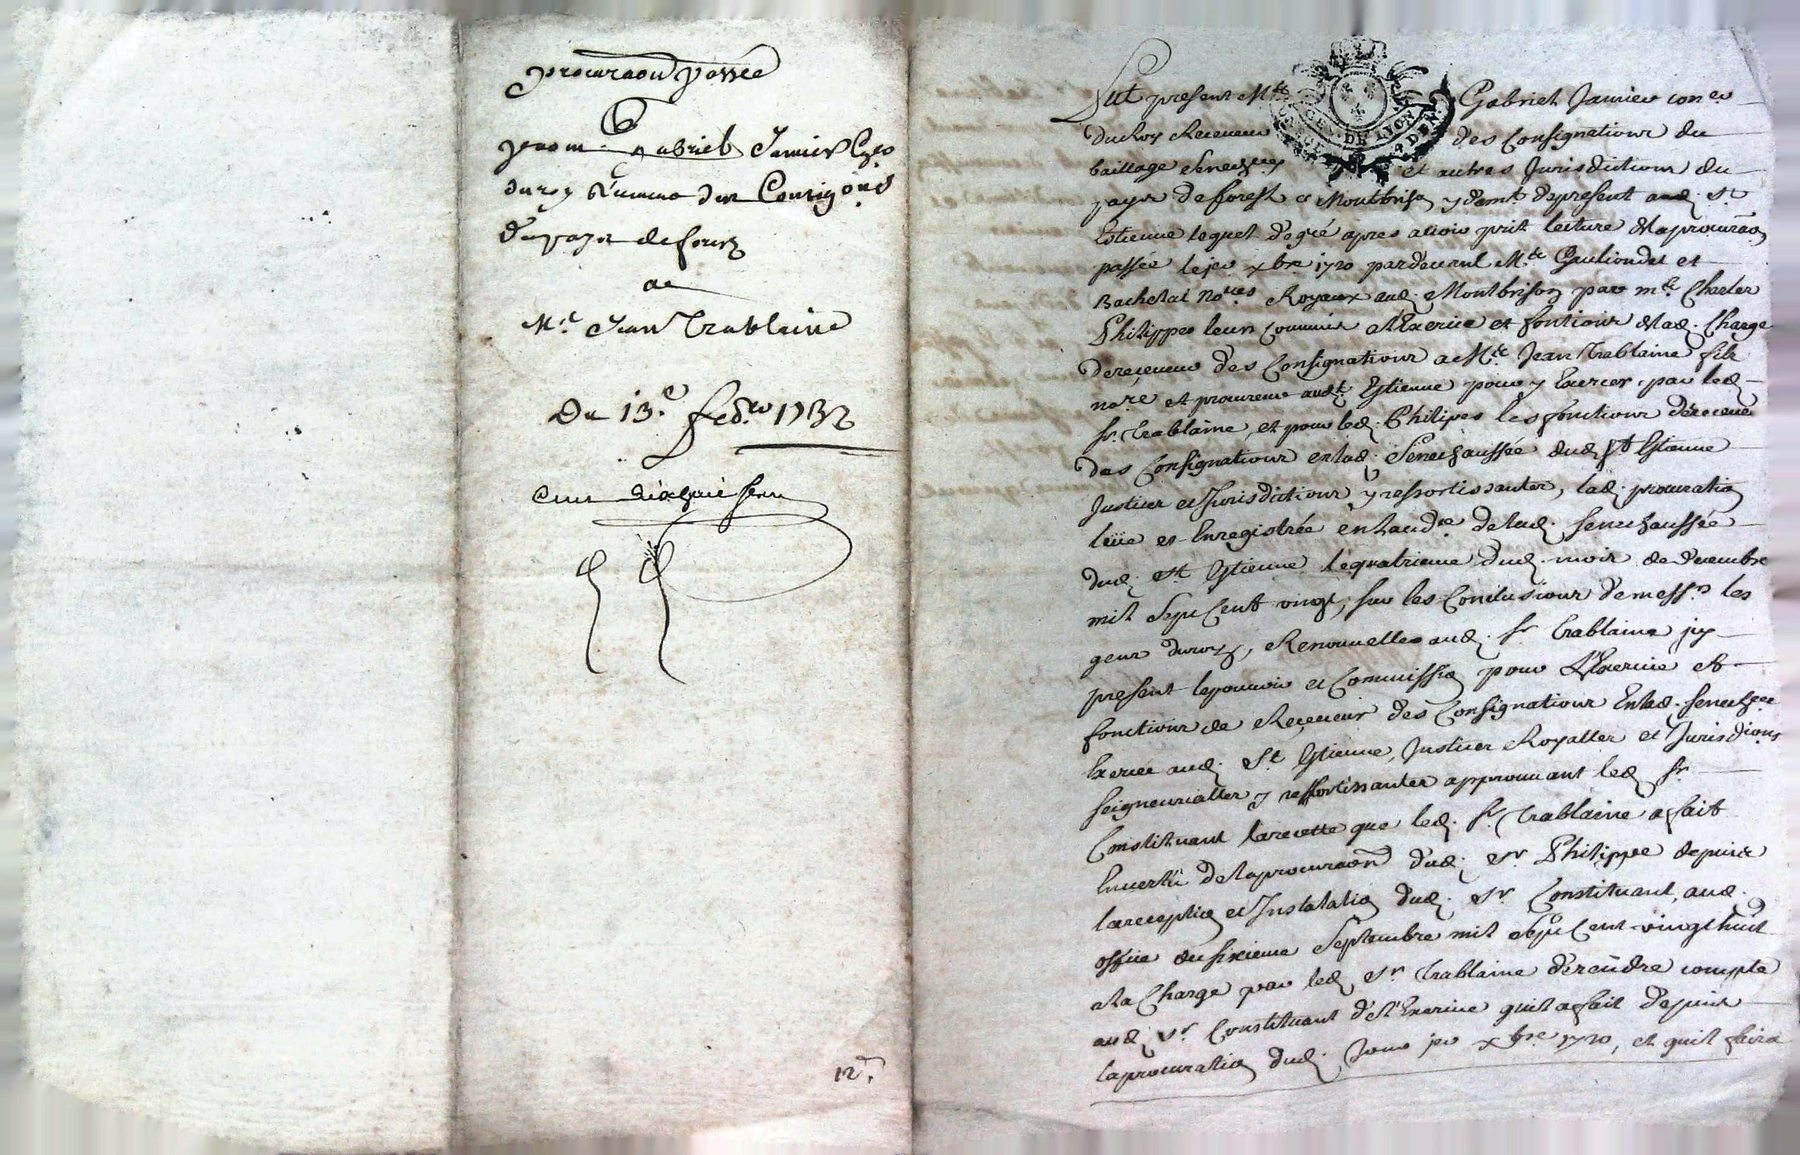 procuraon passée
par m.e Gabriel Janvier
du roy des Consigons
du pays de forez
a
Mre Jean Trablaine
Du 13.e febr. 1732
12.d
GEN. DE LYON
4 DEN
fut present Mtre Gabriel Janvier con.er
du Roy Receveur des Consignations du
bailliage Senechée et autres Jurisdictions du
pays de forest a Montbrison y demt de present aud. St
Estienne lequel de gré apres avoir prit lecture de la procuraon
passée le jer xbre 1720 pardevant Mtre et
Bachelat Nores Royaux aud. Montbrison par mre Charles
Philippes leur commis a l'Exercice et fontions de lad. Charge
de receveur des Consignations a Mre Jean Trablaine fils
nore et procureur audt Estienne pour y Exercer par led.
sr. Trablaine et pour led. Philipes les fonctions de receveur
des Consignations en lad. Senechaussée dud. St Estienne
Justices et Jurisdictions y ressortissantes, lad. procuration
leüe et Enregistrée en l'audce de lad. senechaussée
dud. St Estienne le quatrieme dud. mois de decembre
mil Sept Cent vingt, sur les Conclusions de messrs les
gens du roy, Renouvelle aud. sr Trablaine par
present le pouvoir et Commission pour l'Exercice et
fonctions de Receveur des Consignations En lad. senechée
Exercée aud. St Estienne, Justices Royalles et Jurisdions
seigneurialles y ressortissantes approuvant led. sr
Constituant la recette que led. sr. Trablaine a fait
En vertu de la procuraon dud. sr Philippe depuis
la reception et Instalation dud. sr. Constituant, aud.
office du sixieme Septembre mil Sept Cent vingt huit
a la Charge par led. sr Trablaine de rendre compte
aud. sr Constituant de l'Exercice quil a fait depuis
la procuration dud. Jour jer xbre 1720, et quil faira